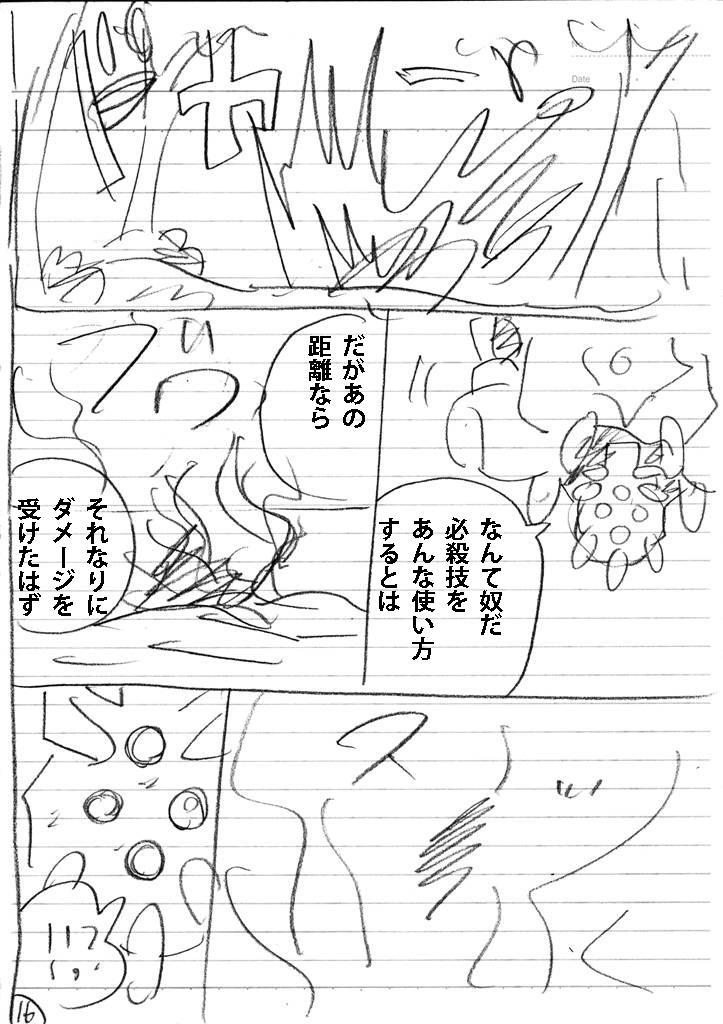 ドォーン
Date
なんて奴だ
必殺技を
あんな使い方
するとは
だがあの
距離なら
ブワ
それなりに
ダメージを
受けたはず
スッ
16